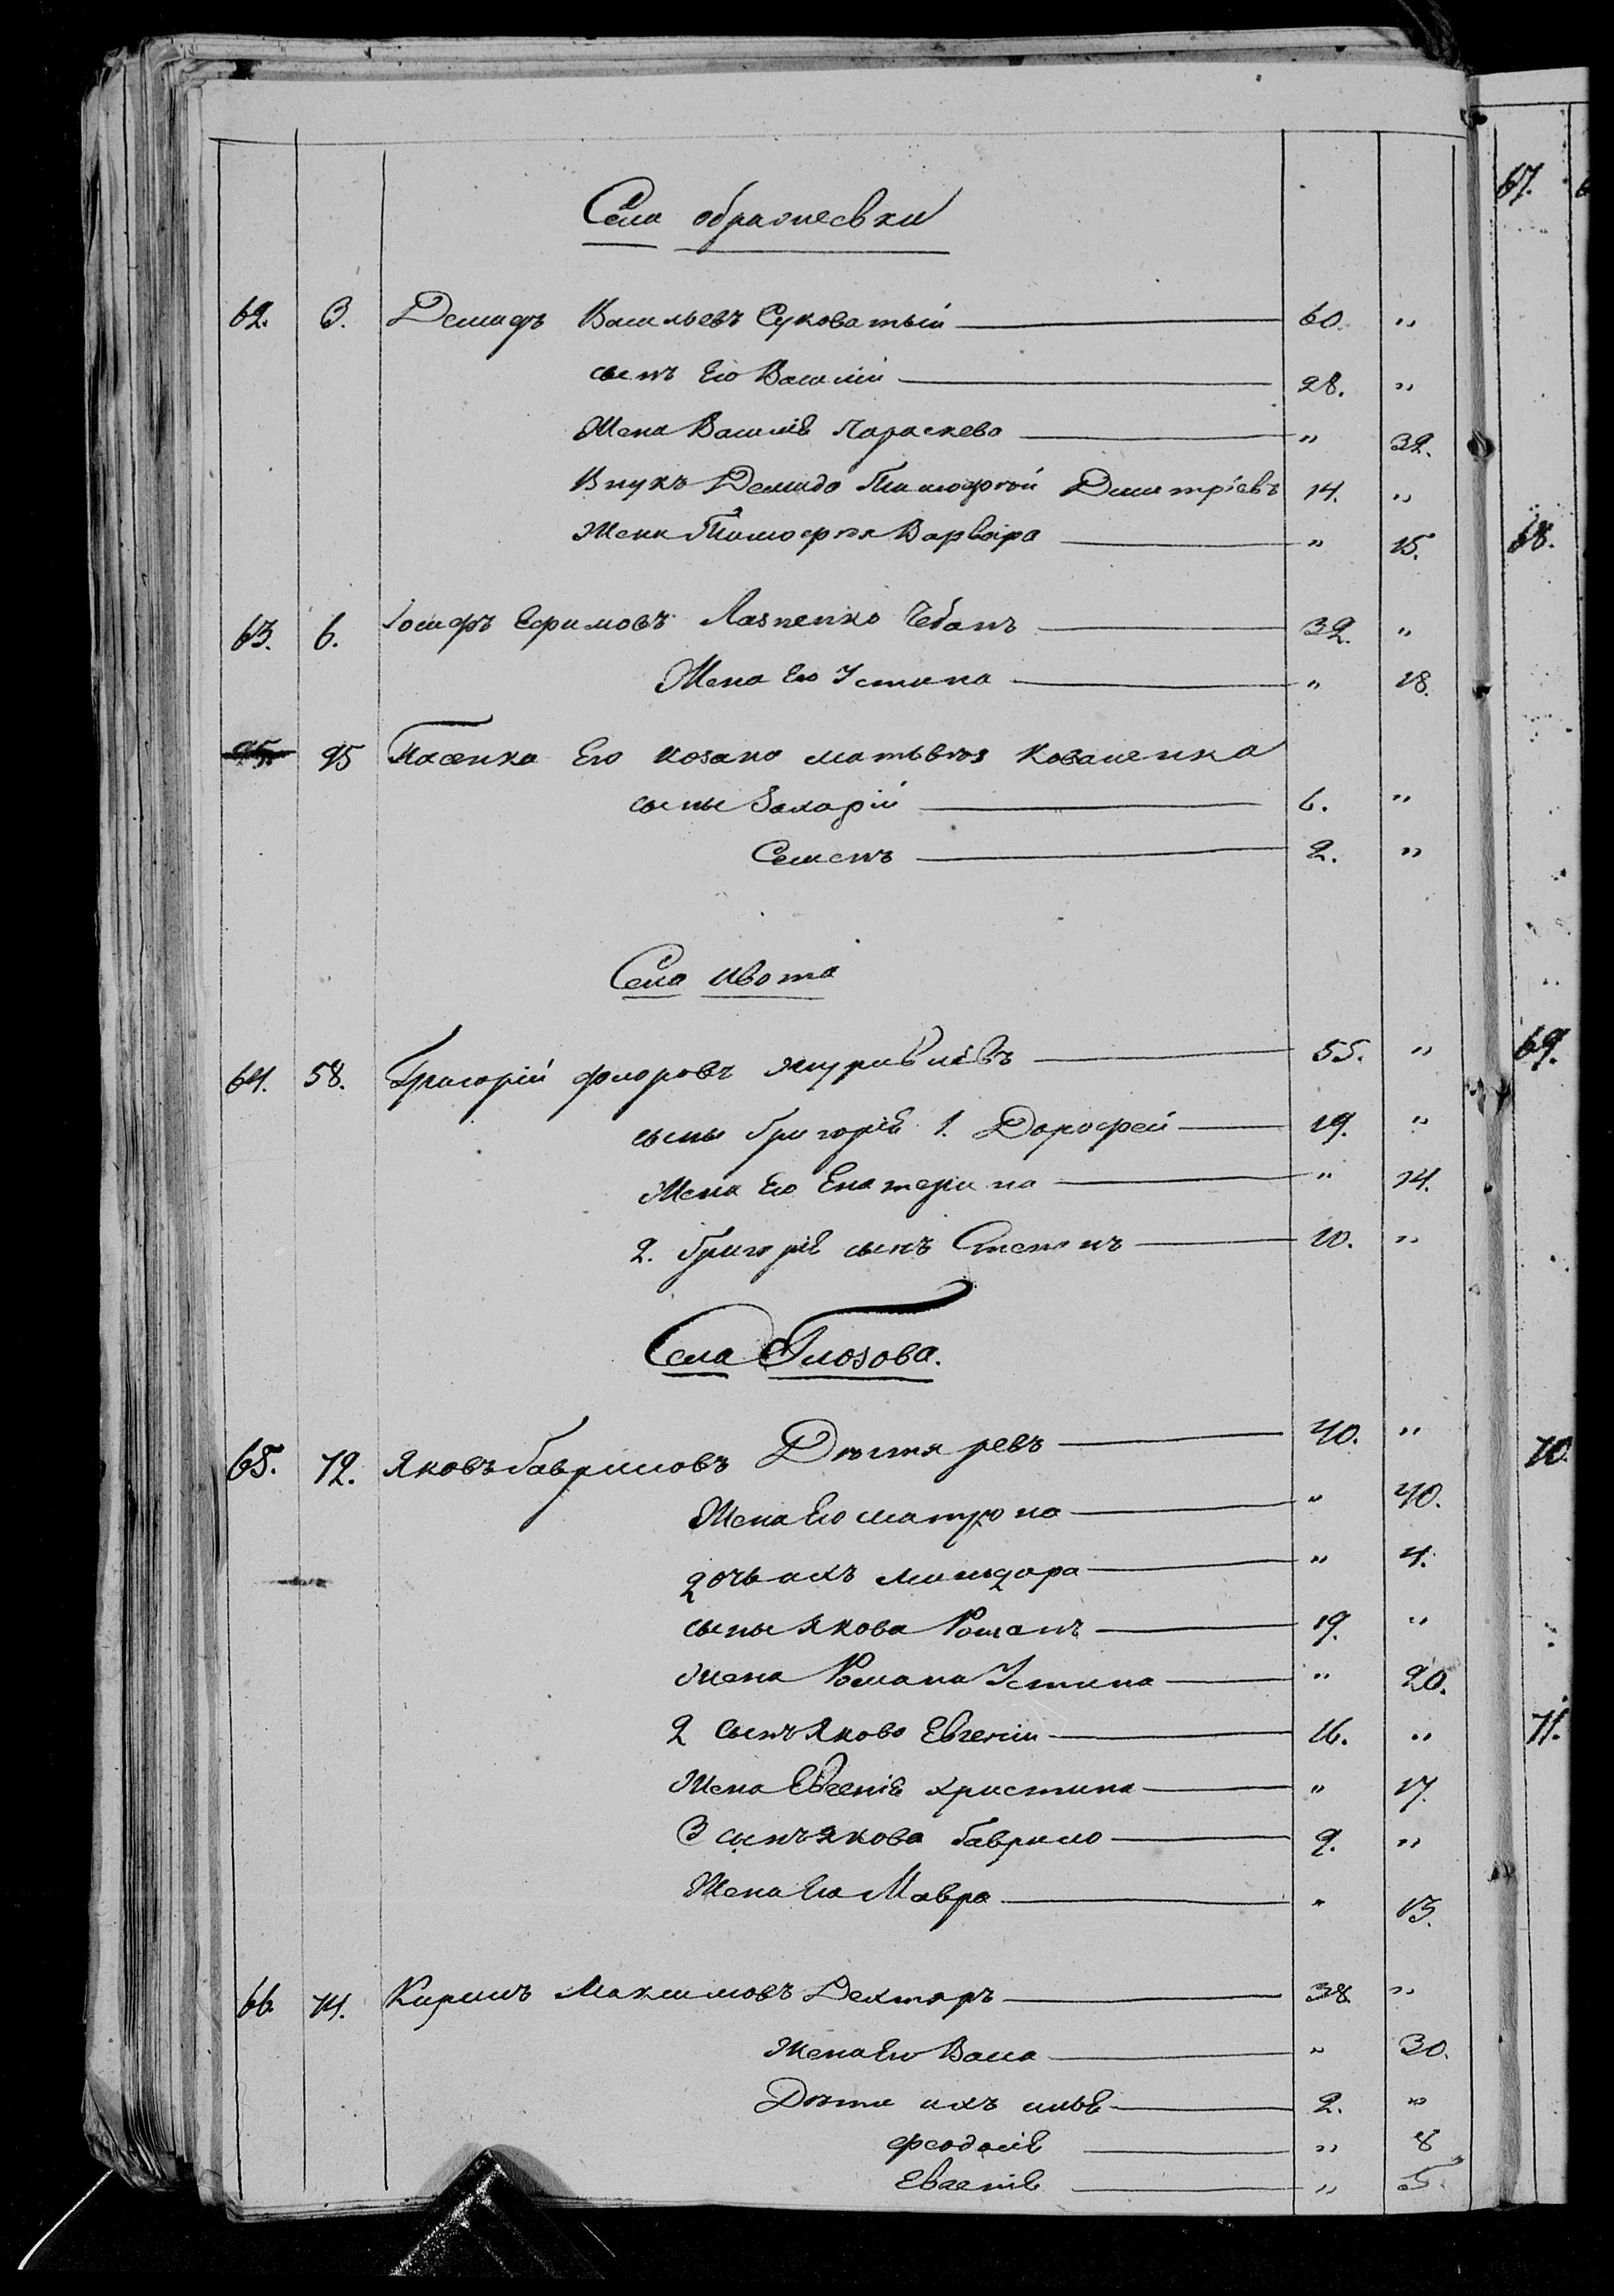 Села Образ­иевки
62. 3. Демидъ Васильевъ Суковатый 60. "
сынъ Его Василій 28. "
Жена Василія Параскева " 32.
Внукъ Демида Тимофѣй Дмитріевъ 14. "
Жена Тимофѣя Варвара " 15.
63. 6. Іосифъ Ефимовъ Лазненко Чебанъ 32. "
Жена Его Устина " 18.
95 Пасенка Его козака матьвѣя Коваленка
сыны Захарій 6. "
Семенъ 2. "
Села Ивота
64. 58. Григорій флоровъ журавлёвъ 55. "
сыны Григорія 1. Дорофей 19. "
Жена Его Екатерина " 14.
2. Григорія сынъ Степанъ 10. "
Села Глозова.
65. 72. Яковъ Гавриловъ Дѣгтяревъ 40. "
Жена Его матрона " 40.
дочь ихъ мильдора " 4.
сыны Якова Романъ 19. "
жена Романа Устина " 20.
2 сынъ Якова Евгеній 16. "
Жена Евгенія христина " 17.
3 сынъ Якова Гаврило 9. "
Жена Его Мавра " 13.
66 74. Кирилъ Максимовъ Дехтяръ 38. "
Жена Его Васса " 30.
Дѣти ихъ илья 2. "
феодосія " 8
Евгенія " 5.
67.
68.
69.
70.
71.